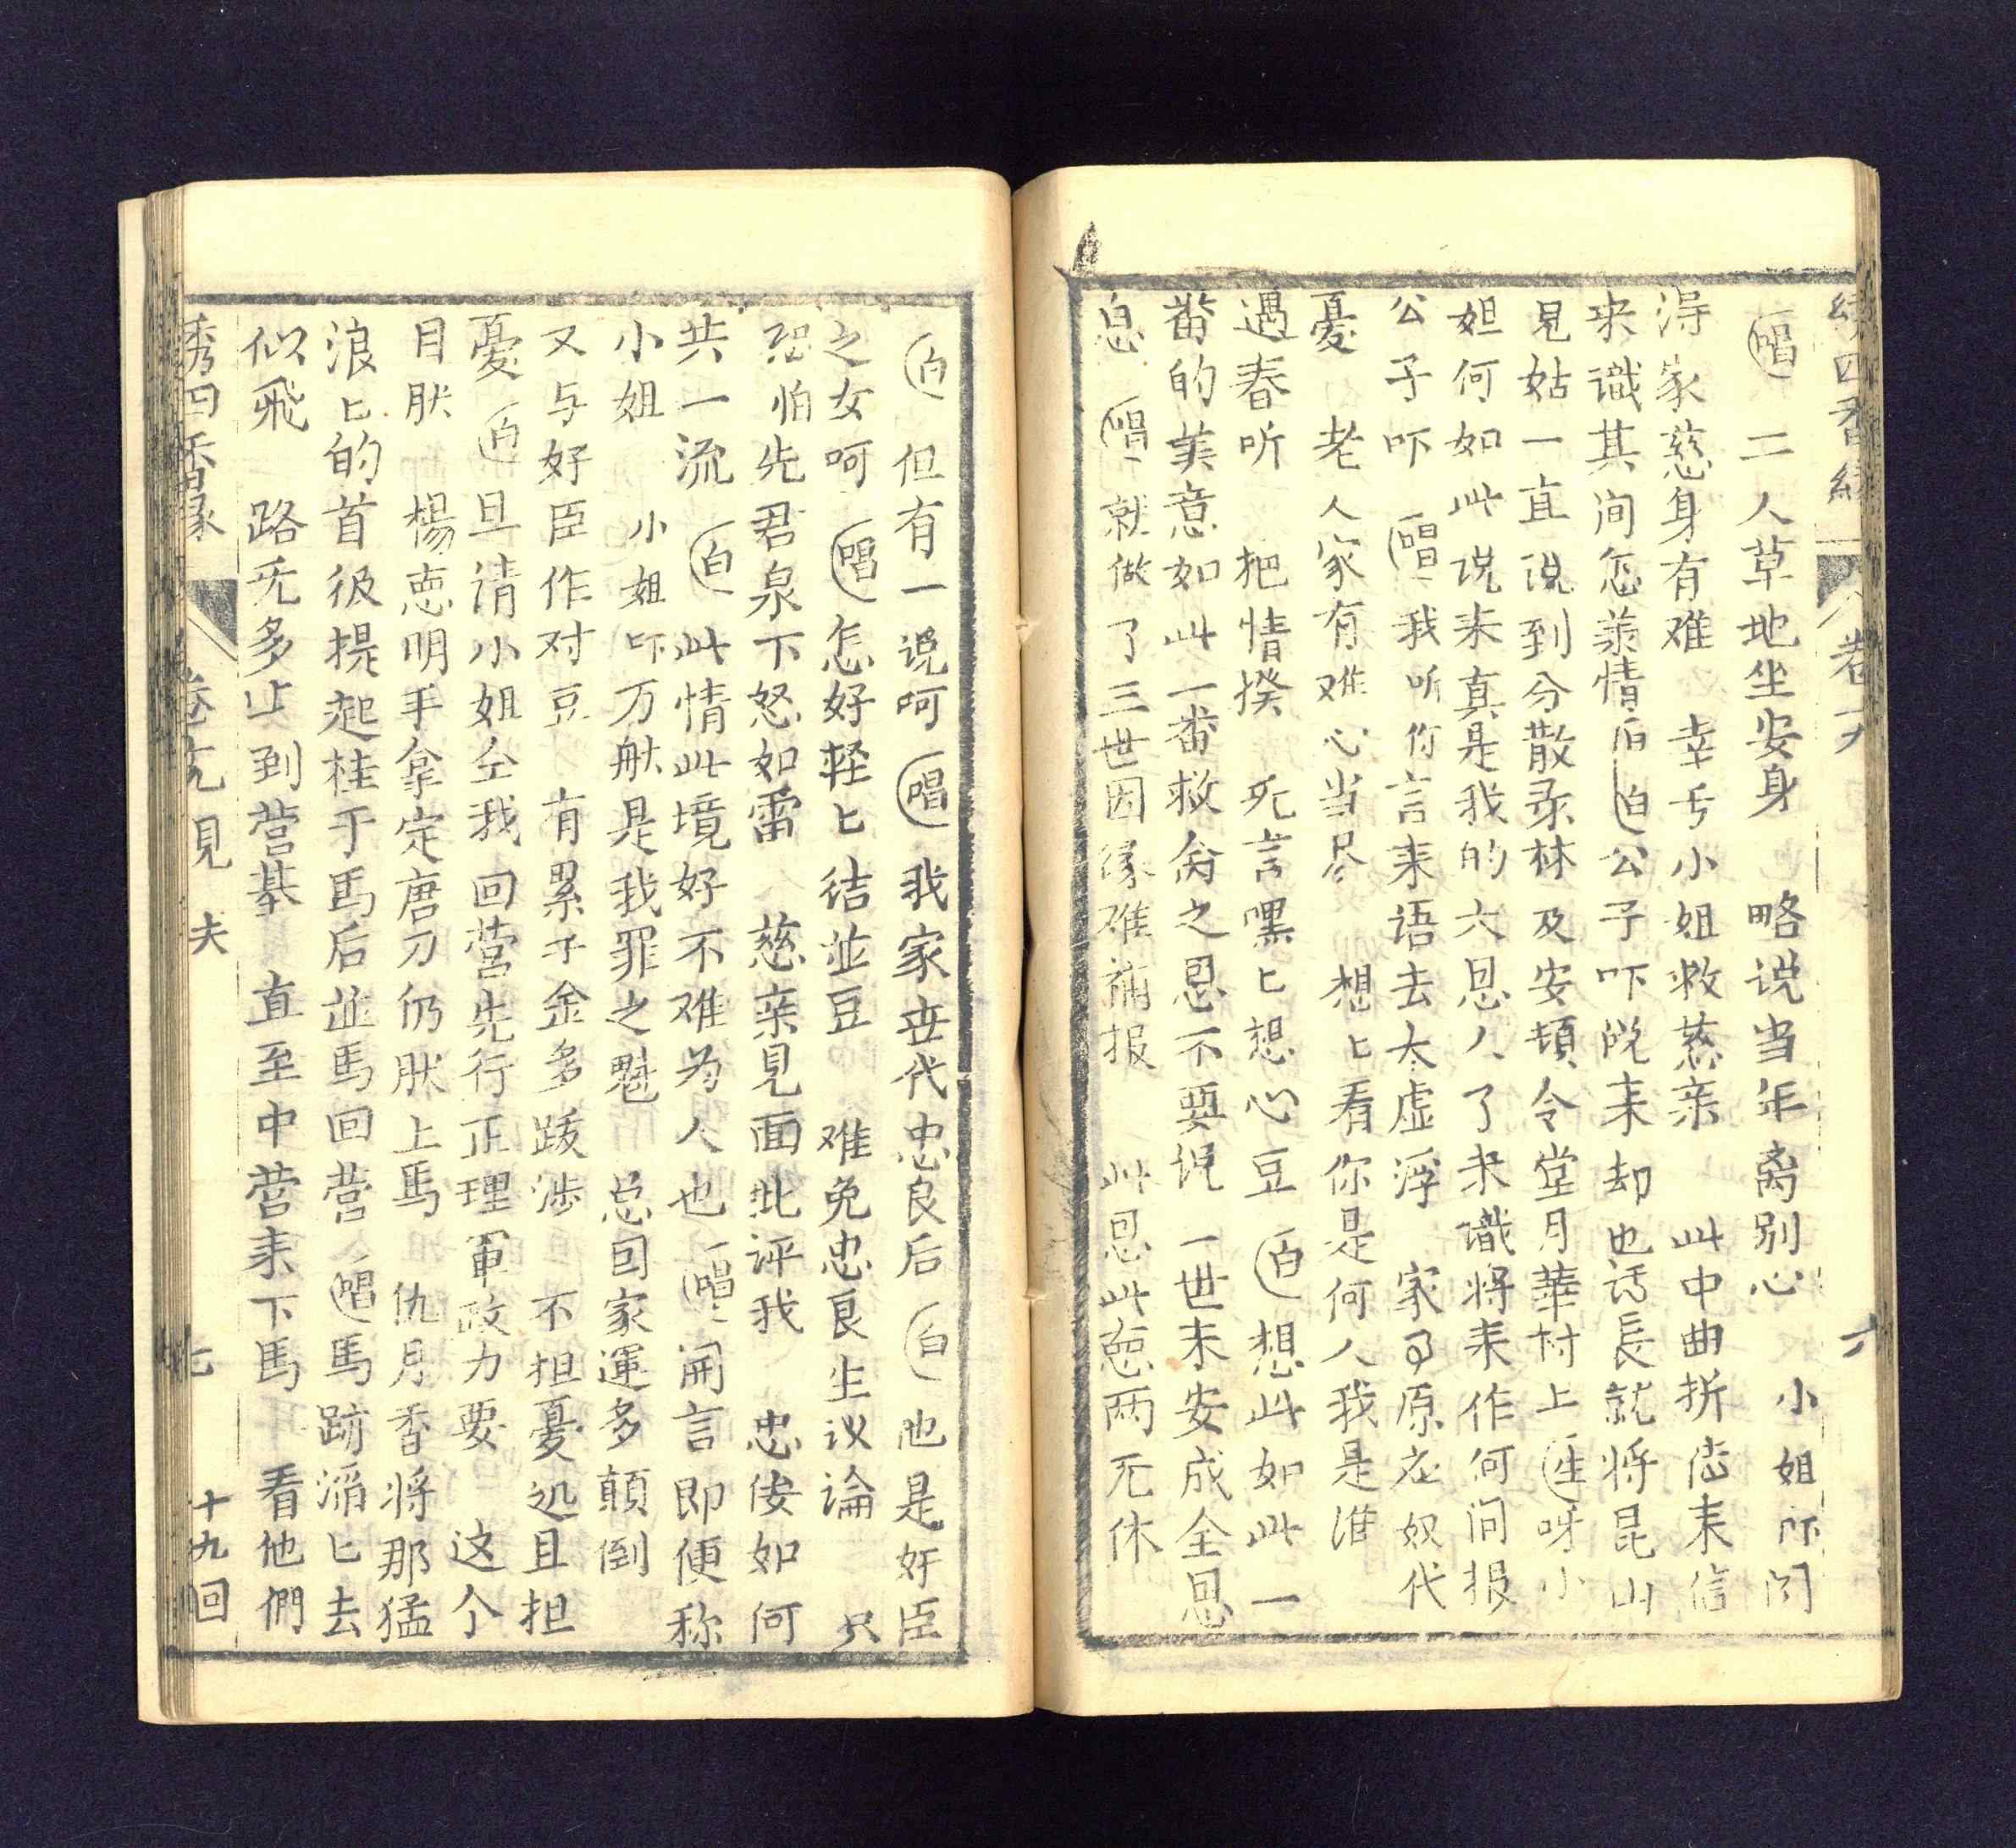 四香緣 卷六 六
唱 二人草地坐安身 略说当年离别心 小姐所问
淂家慈身有难 幸亏小姐救慈亲 此中曲折信
来识其间怎羕情 白公子吓说来却也话長就将昆山
見姑一直说到分散录林及安頓令堂月華村上 生呀小
姐何如此说来真是我的六恩人了未識将来作何间报
公子吓 唱我听你言来语去太虚浮 家 原 奴代
憂 老人家有难心当尽 想匕看你是何人我是谁
遇春听 把情揆 死言嘿匕想心豆 白 想此如此一
畨的美意如此一畨救 之恩不要说一世未安成全恩
息 唱 就做了三世因缘难補报 此恩此 两无休
白 但有一说呵 唱 我家世代忠良后 白 他是奸臣
之女呵 唱 怎好轻匕结並豆 难免忠良生议论 只
恐怕先君泉下怒如雷 慈亲見面批评我 忠佞如何
共一流 白 此情此境好不难为人也 唱 闹言即便称
小姐 小姐吓万般是我罪之魁 总回家運多顛倒
又与好臣作对豆 有累千金多跋涉 不担憂处且担
憂 白 旦请小姐仝我回营先行正理軍政力要 这个
目肰 楊 明手拿定唐刀仍肰上馬 仇月香将那猛
浪匕的首彶提起桂于馬后並馬回营 唱馬跡滔匕去
似飛 路旡多止到营基 直至中营来下馬 看他們
秀四香緣 卷 見夫 七 十九回